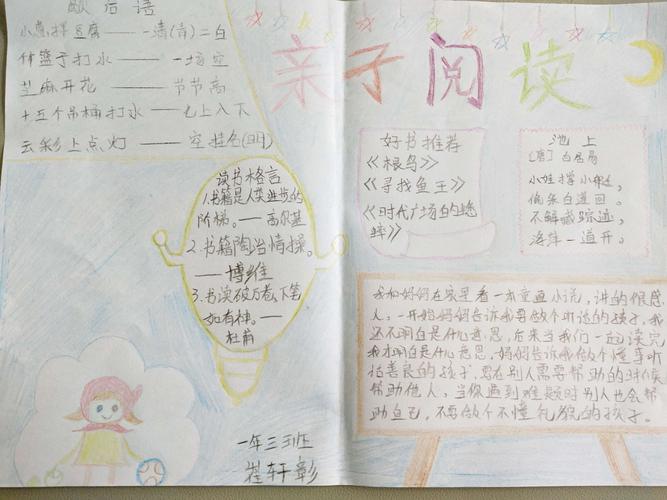 歇后语
小葱拌豆腐——一清(青)二白
竹篮子打水——一场空
芝麻开花——节节高
十五个吊桶打水——七上八下
云彩上点灯——空挂名(明)
读书格言
1.书籍是人类进步的
阶梯。——高尔基
2.书籍陶冶情操。
——博维
3.书读破万卷,下笔
如有神。——
杜甫
一年三班
崔轩彰
亲子阅读
好书推荐
《根鸟》
《寻找鱼王》
《时代广场的蟋
蟀》
池上
[唐]白居易
小娃撑小艇,
偷采白莲回。
不解藏踪迹,
浮萍一道开。
我和妈妈在家里看一本童画小说,讲的很感
人,一开始妈妈告诉我要做个听话的孩子,我
还不明白是什么意思,后来当我们一起读完
我才明白是什么意思,妈妈告诉我做个懂事听
话善良的孩子,要在别人需要帮助的时候
帮助他人,当你遇到难题时别人也会帮
助自己,不要做个不懂礼貌的孩子。